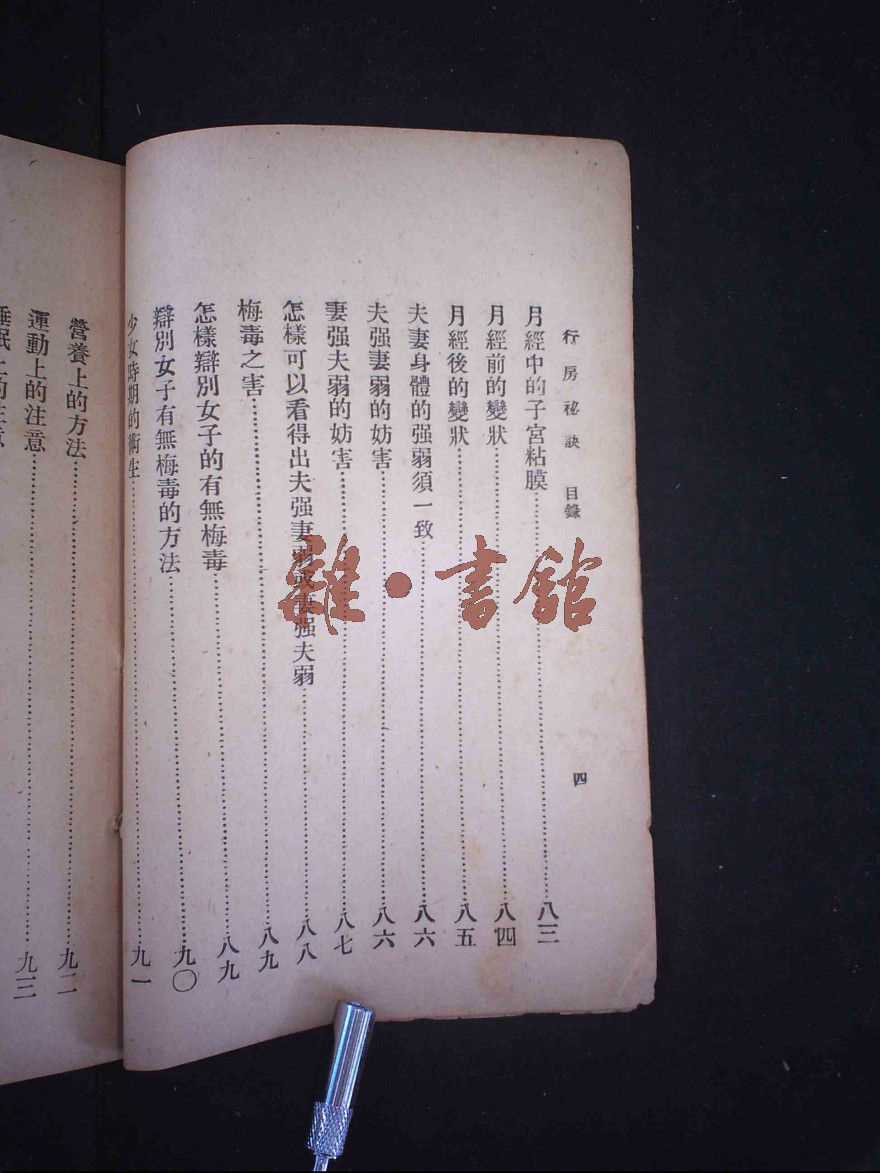 行房祕訣 目錄 四
月經中的子宮粘膜……八三
月經前的變狀……八四
月經後的變狀……八五
夫妻身體的强弱須一致……八六
夫强妻弱的妨害……八六
妻强夫弱的妨害……八七
怎樣可以看得出夫强妻弱或妻强夫弱……八八
梅毒之害……八九
怎樣辯別女子的有無梅毒……八九
辯別女子有無梅毒的方法……九〇
少女時期的衛生……九一
營養上的方法……九二
運動上的注意……九三
睡眠上的注意
雜·書館